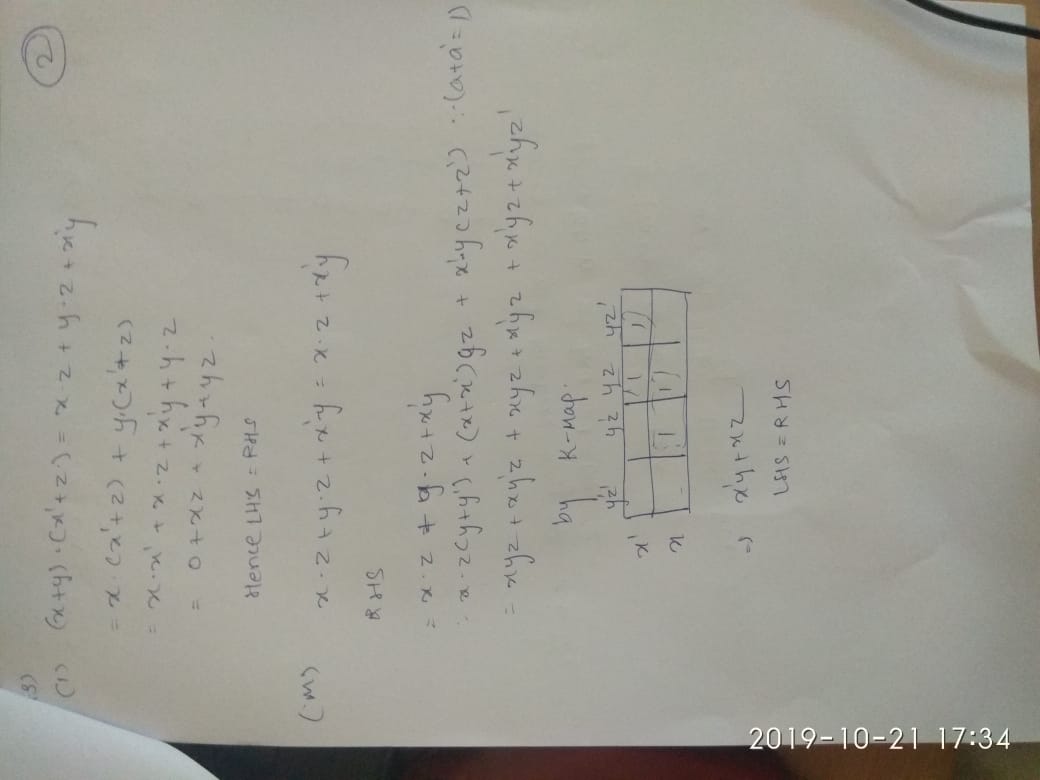 2
3)
(1) (x+y)·(x'+z) = x·z + y·z + x'y
= x·(x'+z) + y·(x'+z)
= x·x' + x·z + x'y + y·z
= 0 + xz + x'y + yz.
Hence LHS = RHS
x·z + y·z + x'y = x·z + x'y
RHS
= x·z + y·z + x'y
∴ x·z(y+y') + (x+x')yz + x'·y(z+z') ∵(a+a'=1)
= xyz + xy'z + xyz + x'yz + x'yz + x'yz'
by K-map.
y'z' y'z yz yz'
x' 1 1
x 1 1
⇒ x'y + xz
LHS = RHS
2019-10-21 17:34